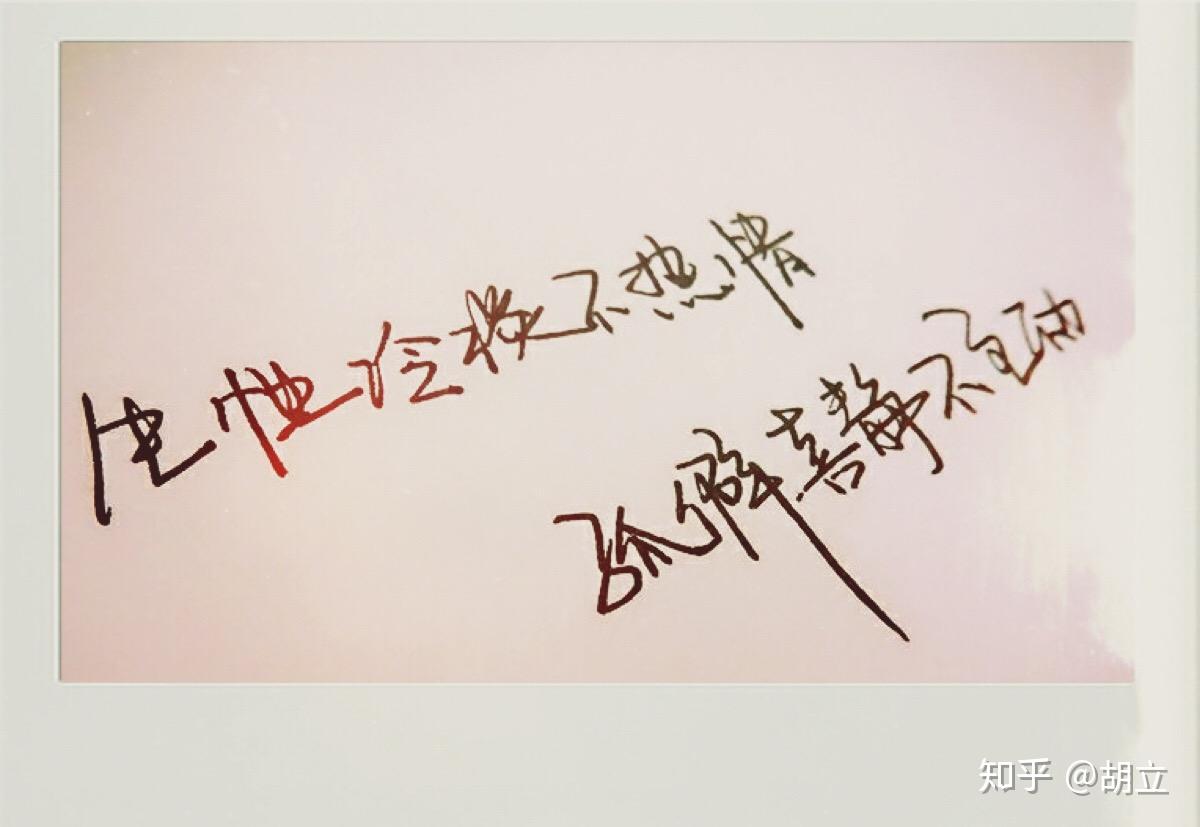 生性冷漠不热情
孤僻喜静不主动
知乎 @胡立